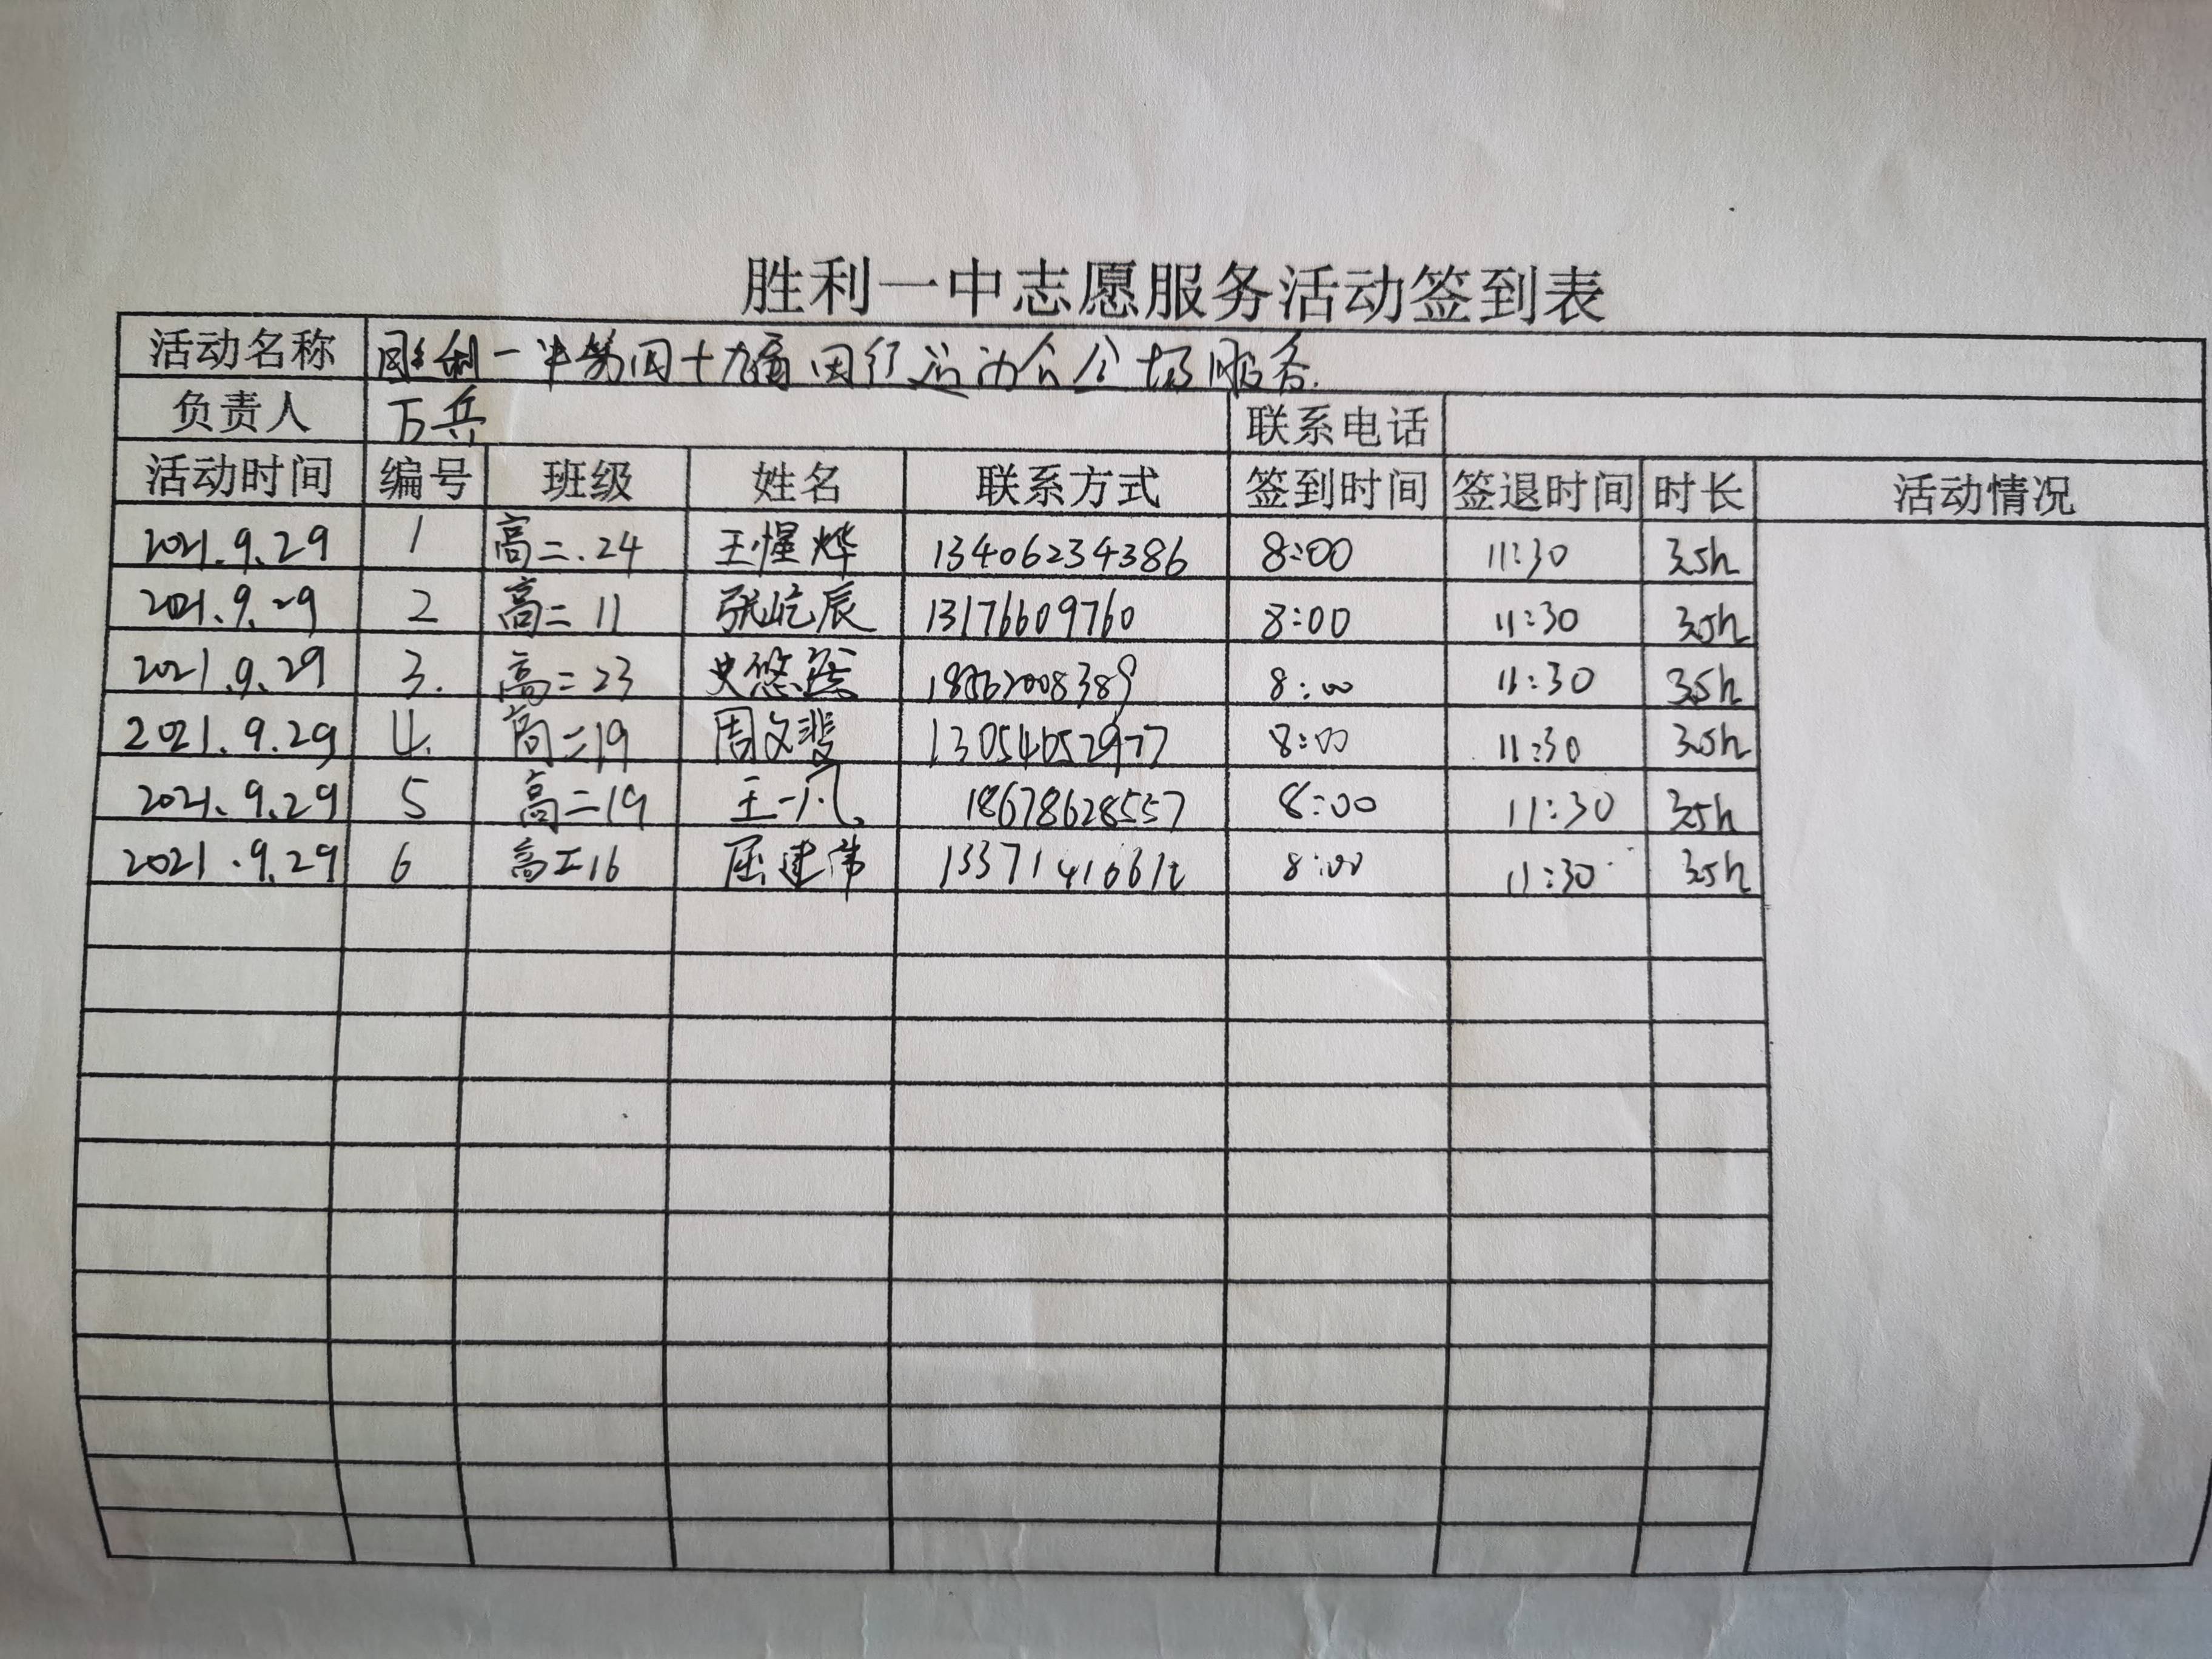 胜利一中志愿服务活动签到表
活动名称 胜利一中第四十九届田径运动会会场服务.
负责人 万兵 联系电话
活动时间 编号 班级 姓名 联系方式 签到时间 签退时间 时长 活动情况
2021.9.29 1 高二.24 王惺烨 13406234386 8:00 11:30 3.5h
2021.9.29 2 高二 11 张屹辰 13176609760 8:00 11:30 3.5h
2021.9.29 3. 高二23 史悠 8:00 11:30 3.5h
2021.9.29 4. 高二19 周文斐 13054652977 8:00 11:30 3.5h
2021.9.29 5 高二19 王一凡 18678628557 8:00 11:30 3.5h
2021.9.29 6 高二16 屈建伟 8:00 11:30 3.5h